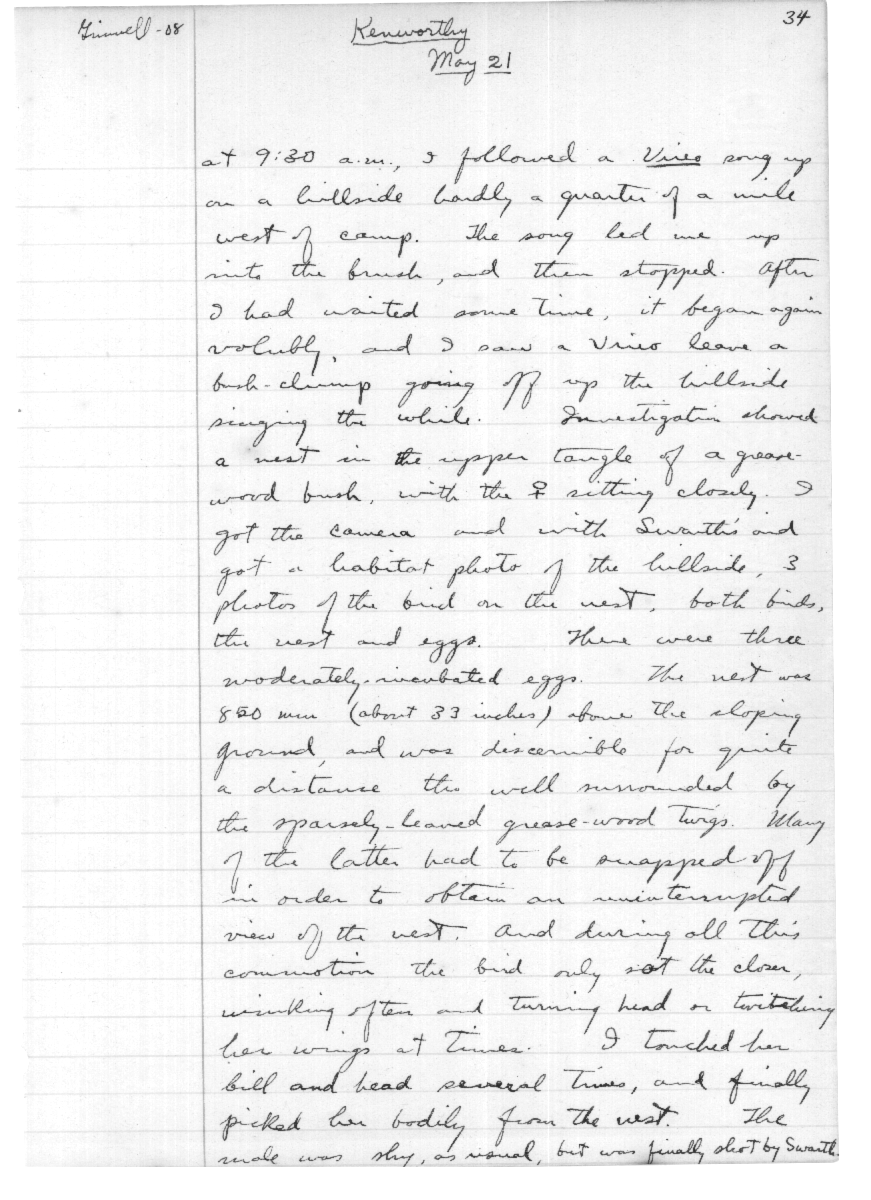 Grinnell-08
Kenworthy
34
May 21
at 9:30 a.m., I followed a Vireo song up
on a hillside hardly a quarter of a mile
west of camp. The song led me up
into the brush, and then stopped. After
I had waited some time, it began again
volubly, and I saw a Vireo leave a
bush-clump going off up the hillside
singing the while. Investigation showed
a nest in the upper tangle of a grease-
wood bush, with the ♀ sitting closely. I
got the camera and with Swarth's aid
got a habitat photo of the hillside, 3
photos of the bird on the nest, both birds,
the nest and eggs. There were three
moderately-incubated eggs. The nest was
850 mm (about 33 inches) above the sloping
ground, and was discernible for quite
a distance tho well surrounded by
the sparsely-leaved grease-wood twigs. Many
of the latter had to be snapped off
in order to obtain an uninterrupted
view of the nest. And during all this
commotion the bird only sat the closer,
winking often and turning head or twitching
her wings at times. I touched her
bill and head several times, and finally
picked her bodily from the nest. The
male was shy, as usual, but was finally shot by Swarth.